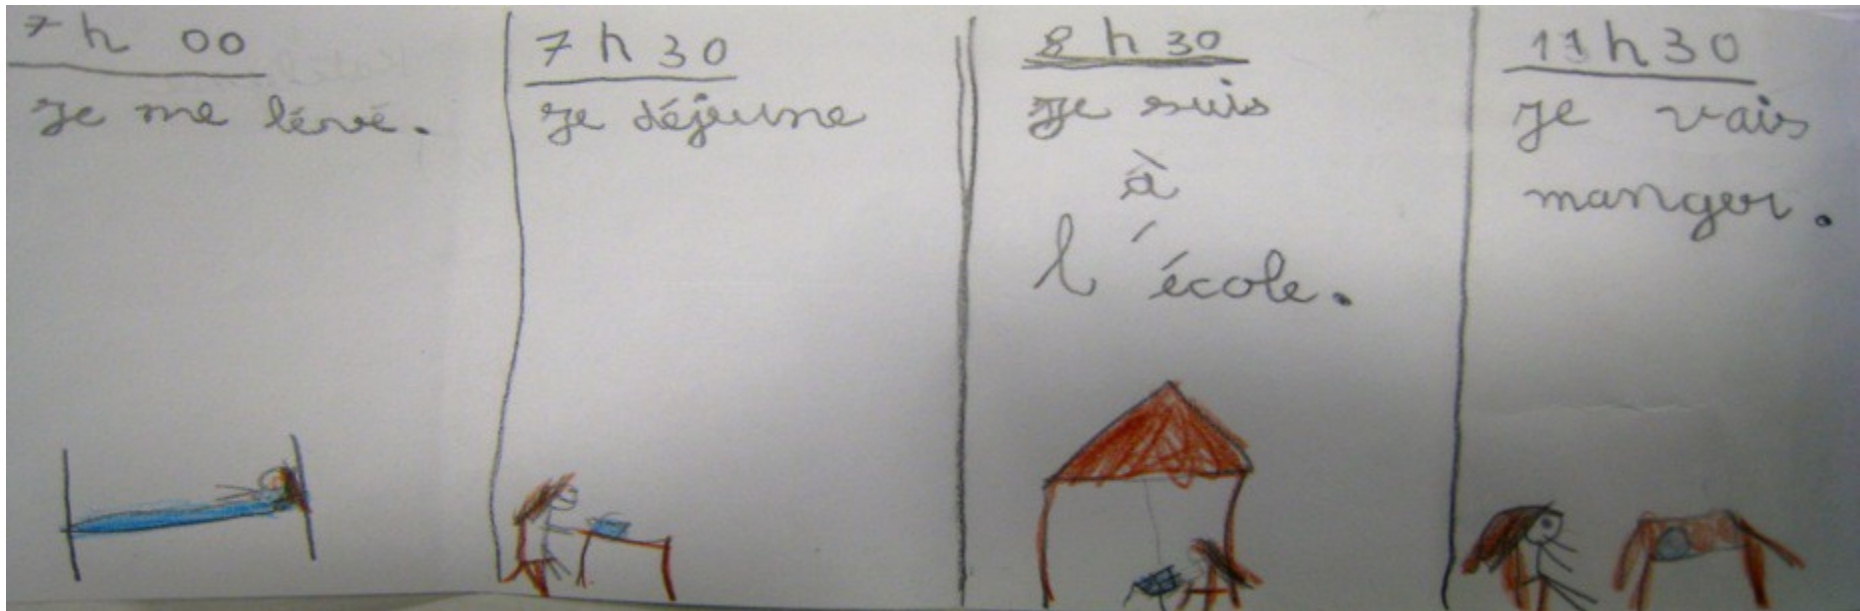 7 h 00
Je me lévé.
7 h 30
Je déjeune
8 h 30
Je suis
à
l'école.
11 h 30
Je vais
manger.